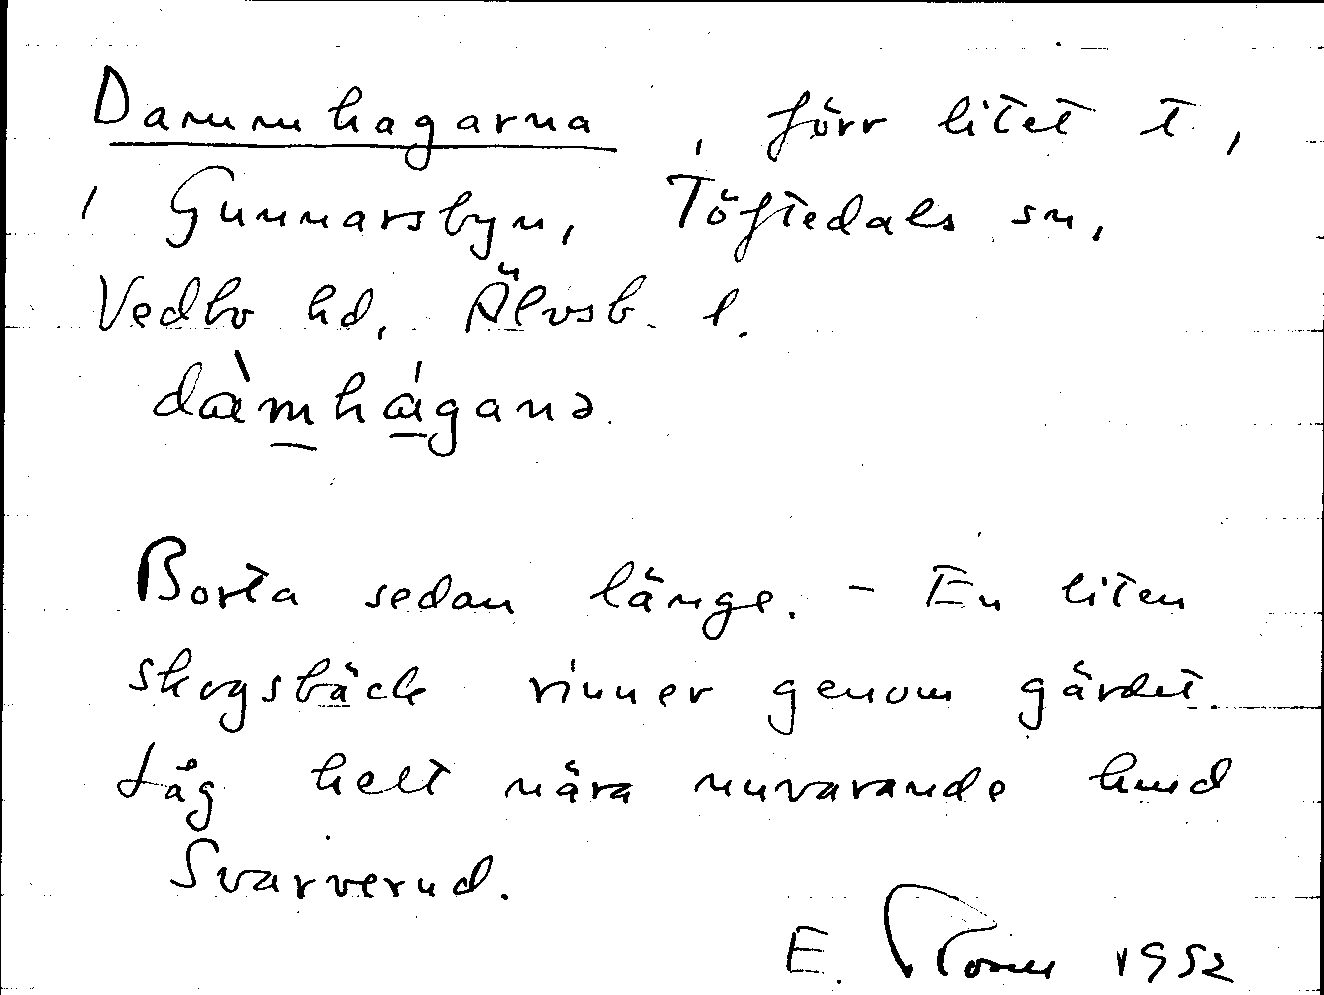 Dammhagarna, förr litet t,
i Gunnarsbyn, Töftedals sn,
Vedbo hd, Älvsb. l.
dàmháganə.
Borta sedan länge. – En liten
skogsbäck rinner genom gärdet.
Låg helt nära nuvarande hmd
Svarverud.
E. 1952